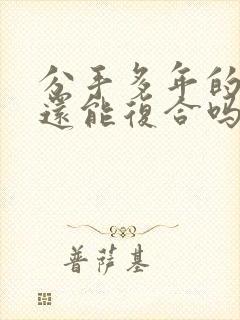 分手多年的
還能復合吗
普萨基